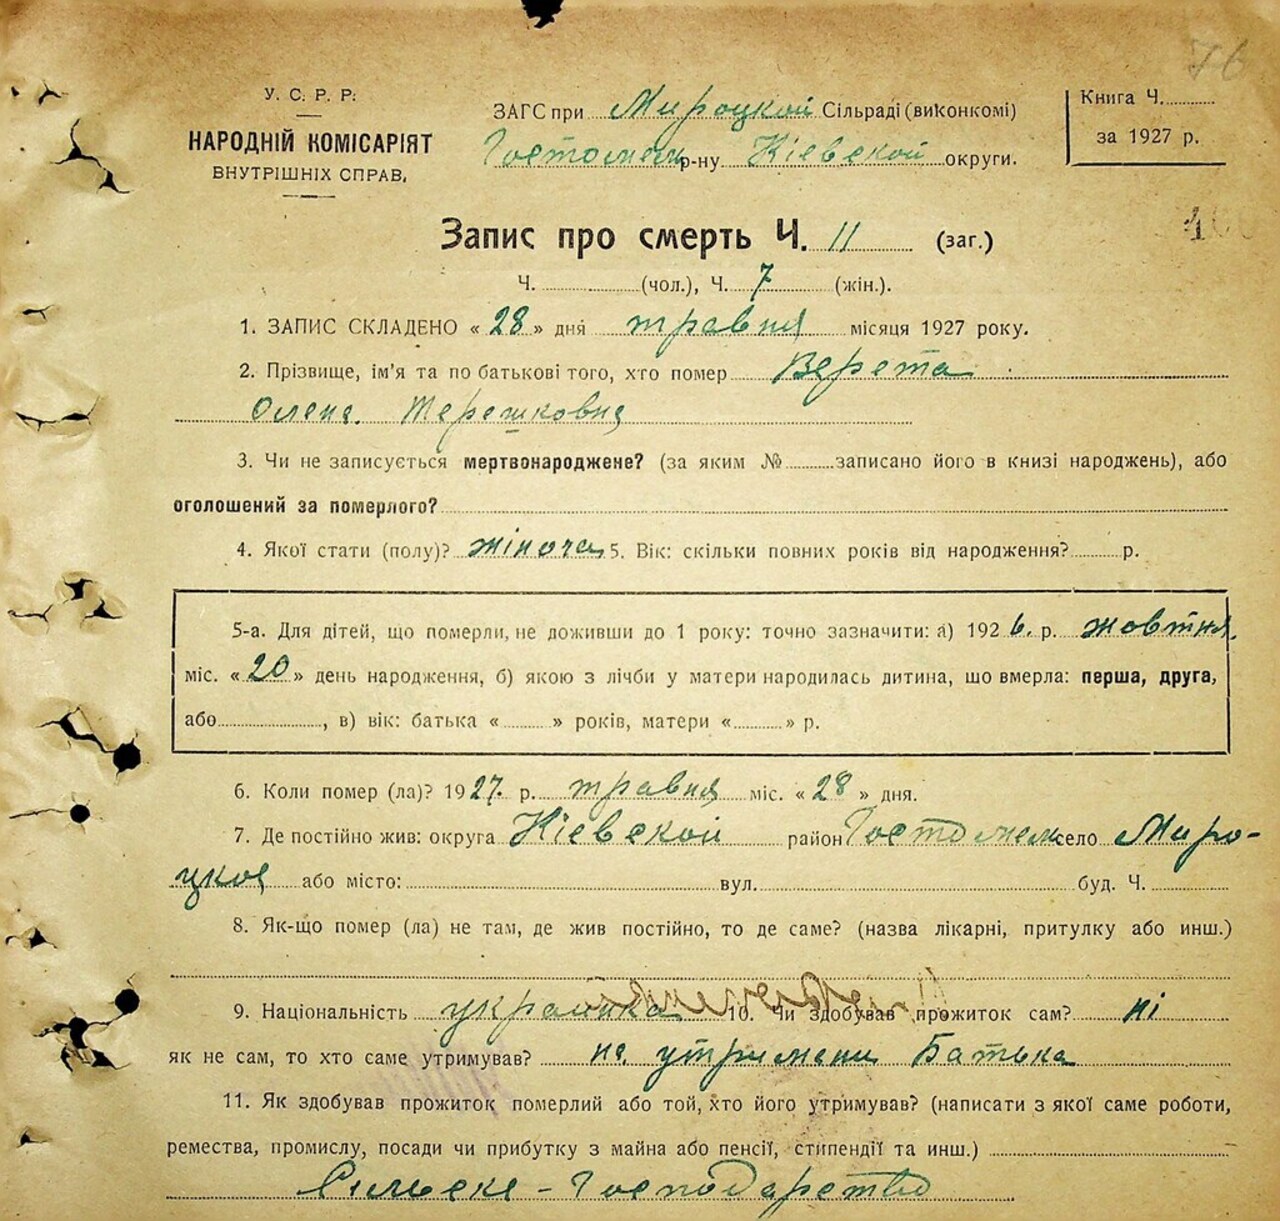 76
У. С. Р. Р.
НАРОДНІЙ КОМІСАРІЯТ
ВНУТРІШНІХ СПРАВ.
ЗАГС при Мироцкой Сільраді (виконкомі)
Гостомел р-ну Кіевской округи.
Книга Ч.
за 1927 р.
Запис про смерть Ч. 11 (заг.)
Ч. (чол.), Ч. 7 (жін.).
1. ЗАПИС СКЛАДЕНО « 28 » дня травня місяця 1927 року.
2. Прізвище, ім'я та по батькові того, хто помер Верета
Олена Терешковна
3. Чи не записується мертвонароджене? (за яким № записано його в книзі народжень), або
оголошений за померлого?
4. Якої стати (полу)? жіноча 5. Вік: скільки повних років від народження? р.
5-а. Для дітей, що померли, не доживши до 1 року: точно зазначити: а) 1926. р. жовтня
міс. « 20 » день народження, б) якою з лічби у матери народилась дитина, що вмерла: перша, друга,
або , в) вік: батька « » років, матери « » р.
6. Коли помер (ла)? 1927. р. травня міс. « 28 » дня.
7. Де постійно жив: округа Кіевской район Гостомел село Миро-
цкой або місто: вул. буд. Ч.
8. Як-що помер (ла) не там, де жив постійно, то де саме? (назва лікарні, притулку або инш.)
9. Національність украінка 10. Чи здобував прожиток сам? ні
як не сам, то хто саме утримував? на утримані Батька
11. Як здобував прожиток померлий або той, хто його утримував? (написати з якої саме роботи,
ремества, промислу, посади чи прибутку з майна або пенсії, стипендії та инш.)
Сильске - Господарство